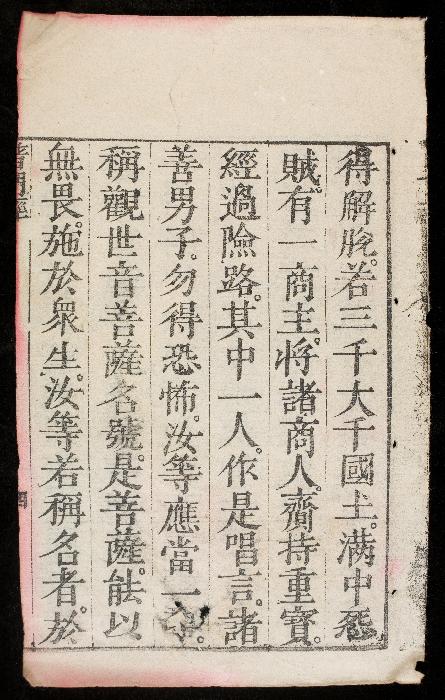 得解脫。若三千大千國土。滿中怨
賊。有一商主。將諸商人。齎持重寶。
經過險路。其中一人。作是唱言。諸
善男子。勿得恐怖。汝等應當一心。
稱觀世音菩薩名號。是菩薩。能以
無畏。施於衆生。汝等若稱名者。於
普門經
四